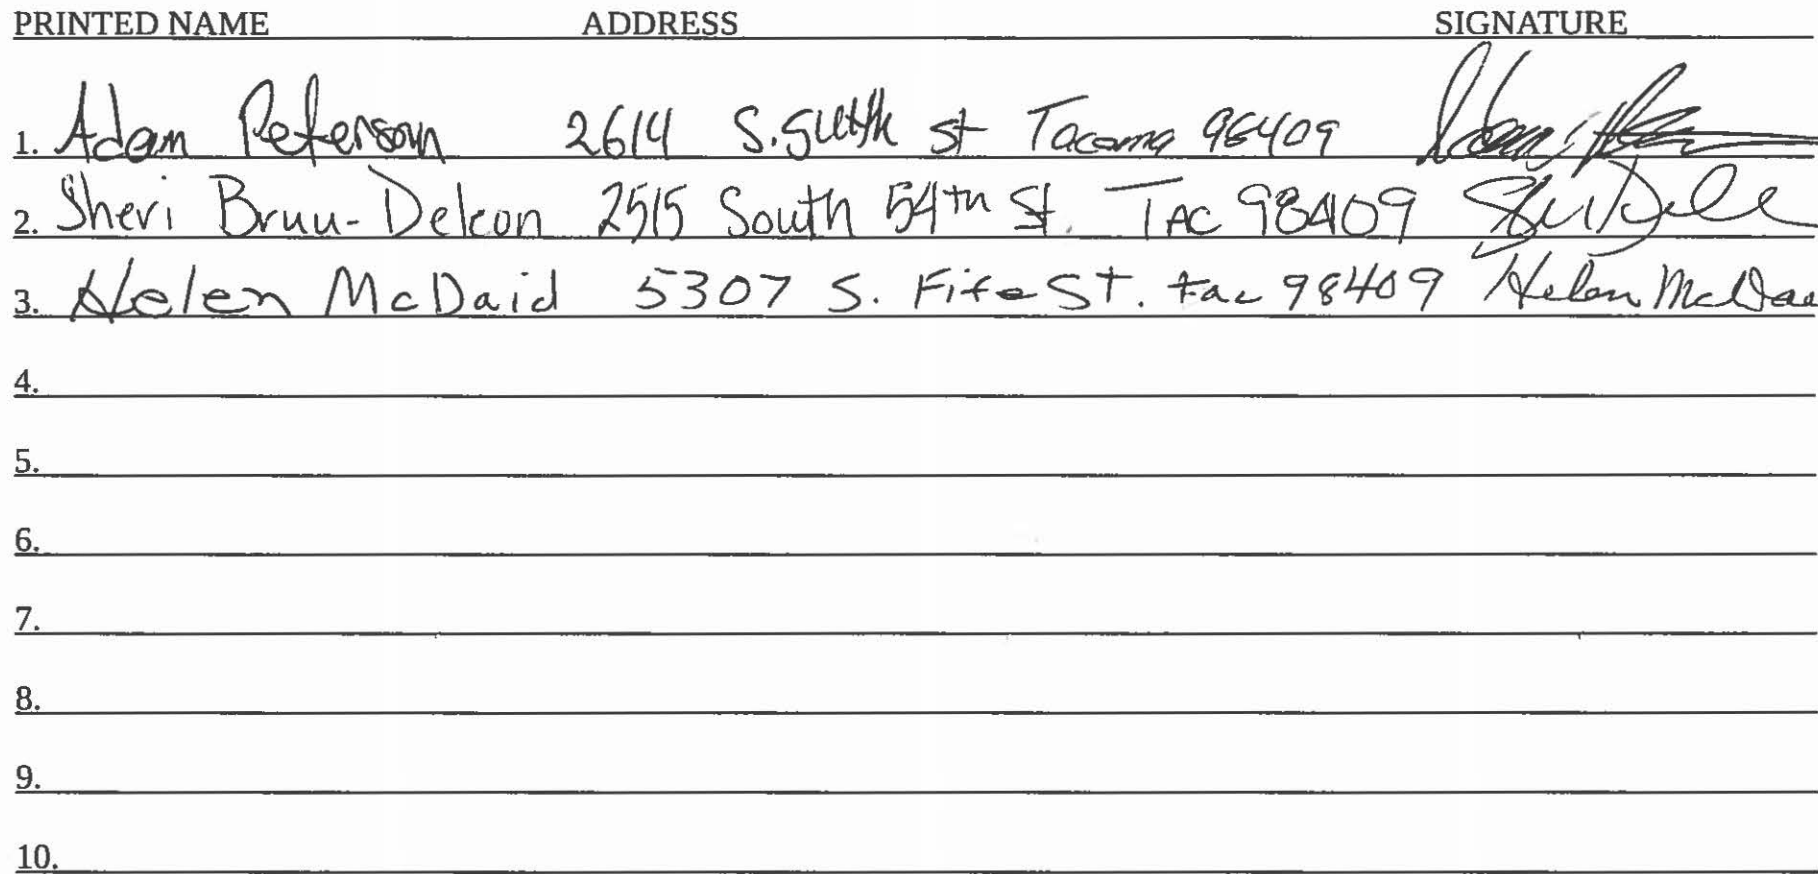 PRINTED NAME ADDRESS SIGNATURE
1. Adam Peterson 2614 S. 54th st Tacoma 98409
2. Sheri Bruu-Deleon 2515 South 54th St. TAC 98409
3. Helen McDaid 5307 S. Fife ST. tac 98409 Helen McDai
4.
5.
6.
7.
8.
9.
10.